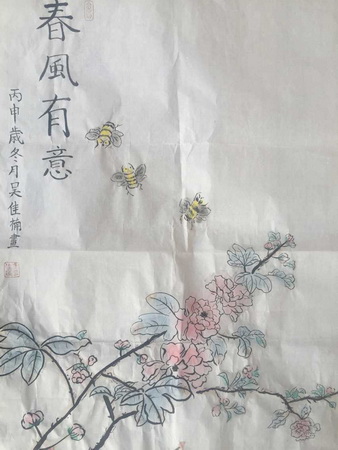 春風有意
丙申歲冬月吴佳楠畫